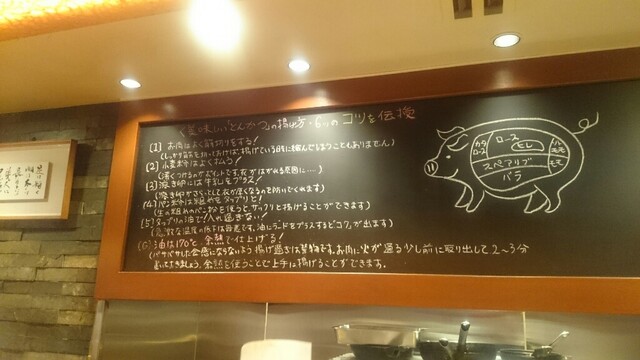 <美味しいとんかつの揚げ方・6つのコツを伝授
[1] お肉はよく筋切りをする!
(しっかり筋を切っておけば揚げている時に縮んでしまうこともありません)
[2] 小麦粉はよくはらう!
[3] 溶き卵には牛乳をプラス!
[4] パン粉は粗めをタップリと!
(生の粗めのパン粉を使うと、サックリと揚げることができます)
[5] タップリの油で!入れ過ぎない!
(急激な温度の低下は厳禁です。油にラードをプラスするとコクが出ます)
[6] 油は170℃余熱で仕上げる!
(パサパサした食感にならないよう揚げ過ぎは禁物です。お肉に火が通る少し前に取り出して、2〜3分
おいておきましょう。余熱を使うことで上手に揚げることができます。
カタ
ロース
ロース
ヒレ
スペアリブ
バラ
モモ